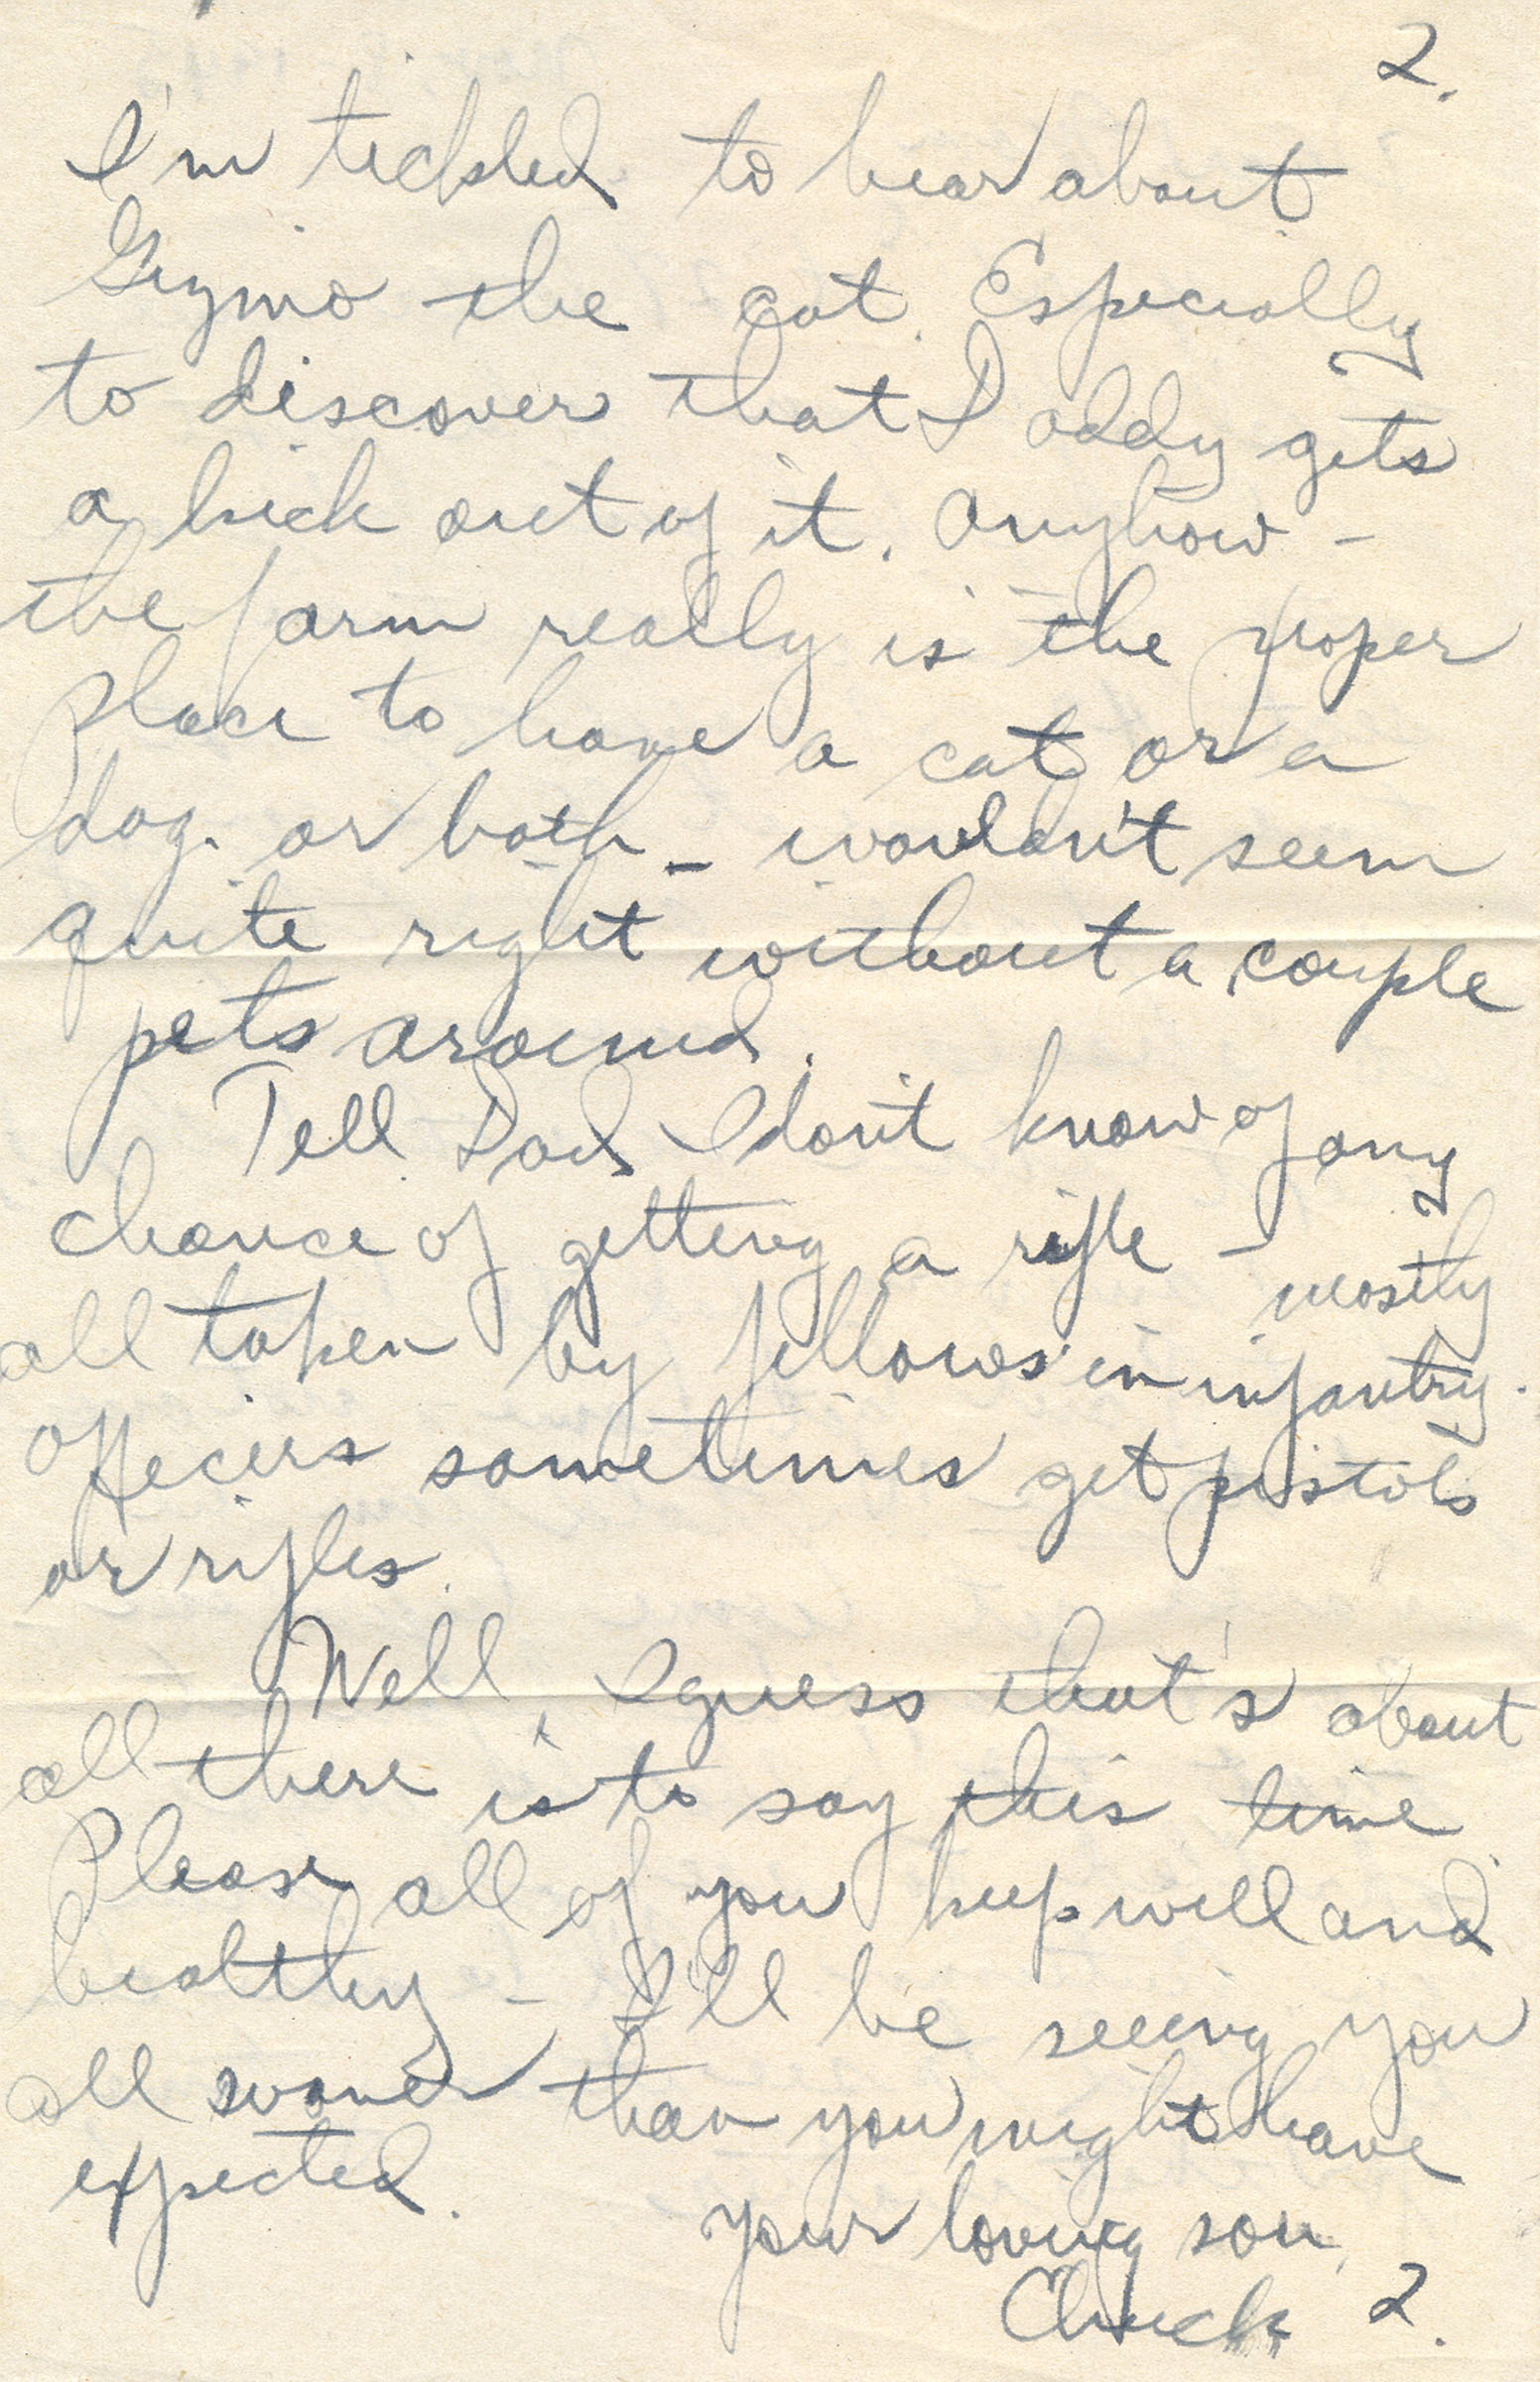 2.
I'm tickled to hear about
Gizmo the cat. Especially
to discover that Daddy gets
a kick out of it. Anyhow -
the farm really is the proper
place to have a cat or a
dog. or both - wouldn't seem
quite right without a couple
pets around.
Tell Dad I don't know of any
chance of getting a rifle - mostly
all taken by fellows in infantry.
Officers sometimes get pistols
or rifles.
Well, I guess that's about
all there is to say this time
Please all of you keep well and
healthy - I'll be seeing you
all sooner than you might have
expected.
your loving son,
Chuck 2.